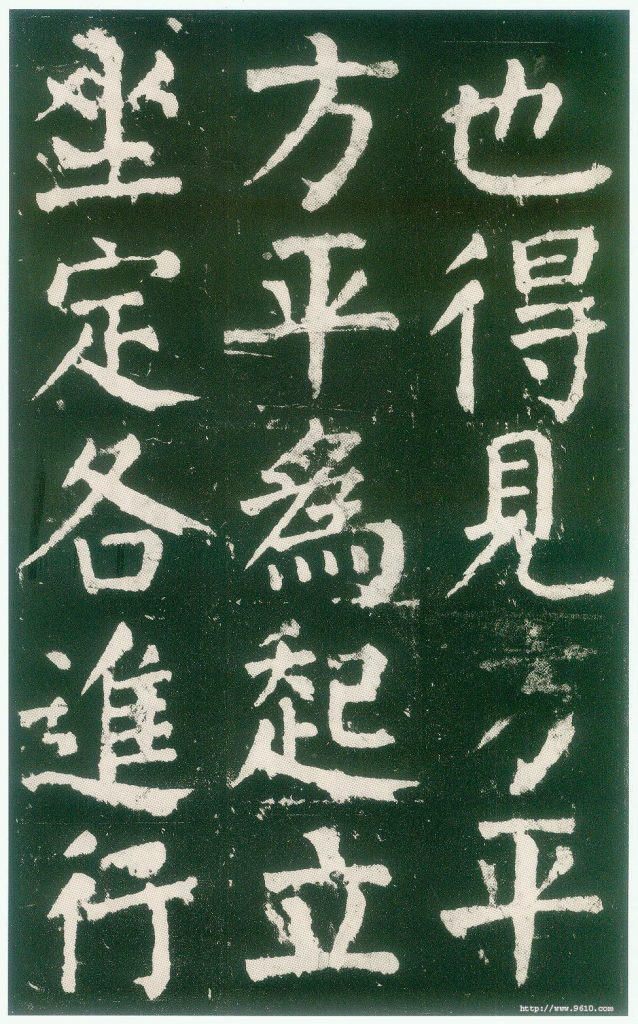 也得見平
方平為起立
坐定各進行
http://www.9610.com